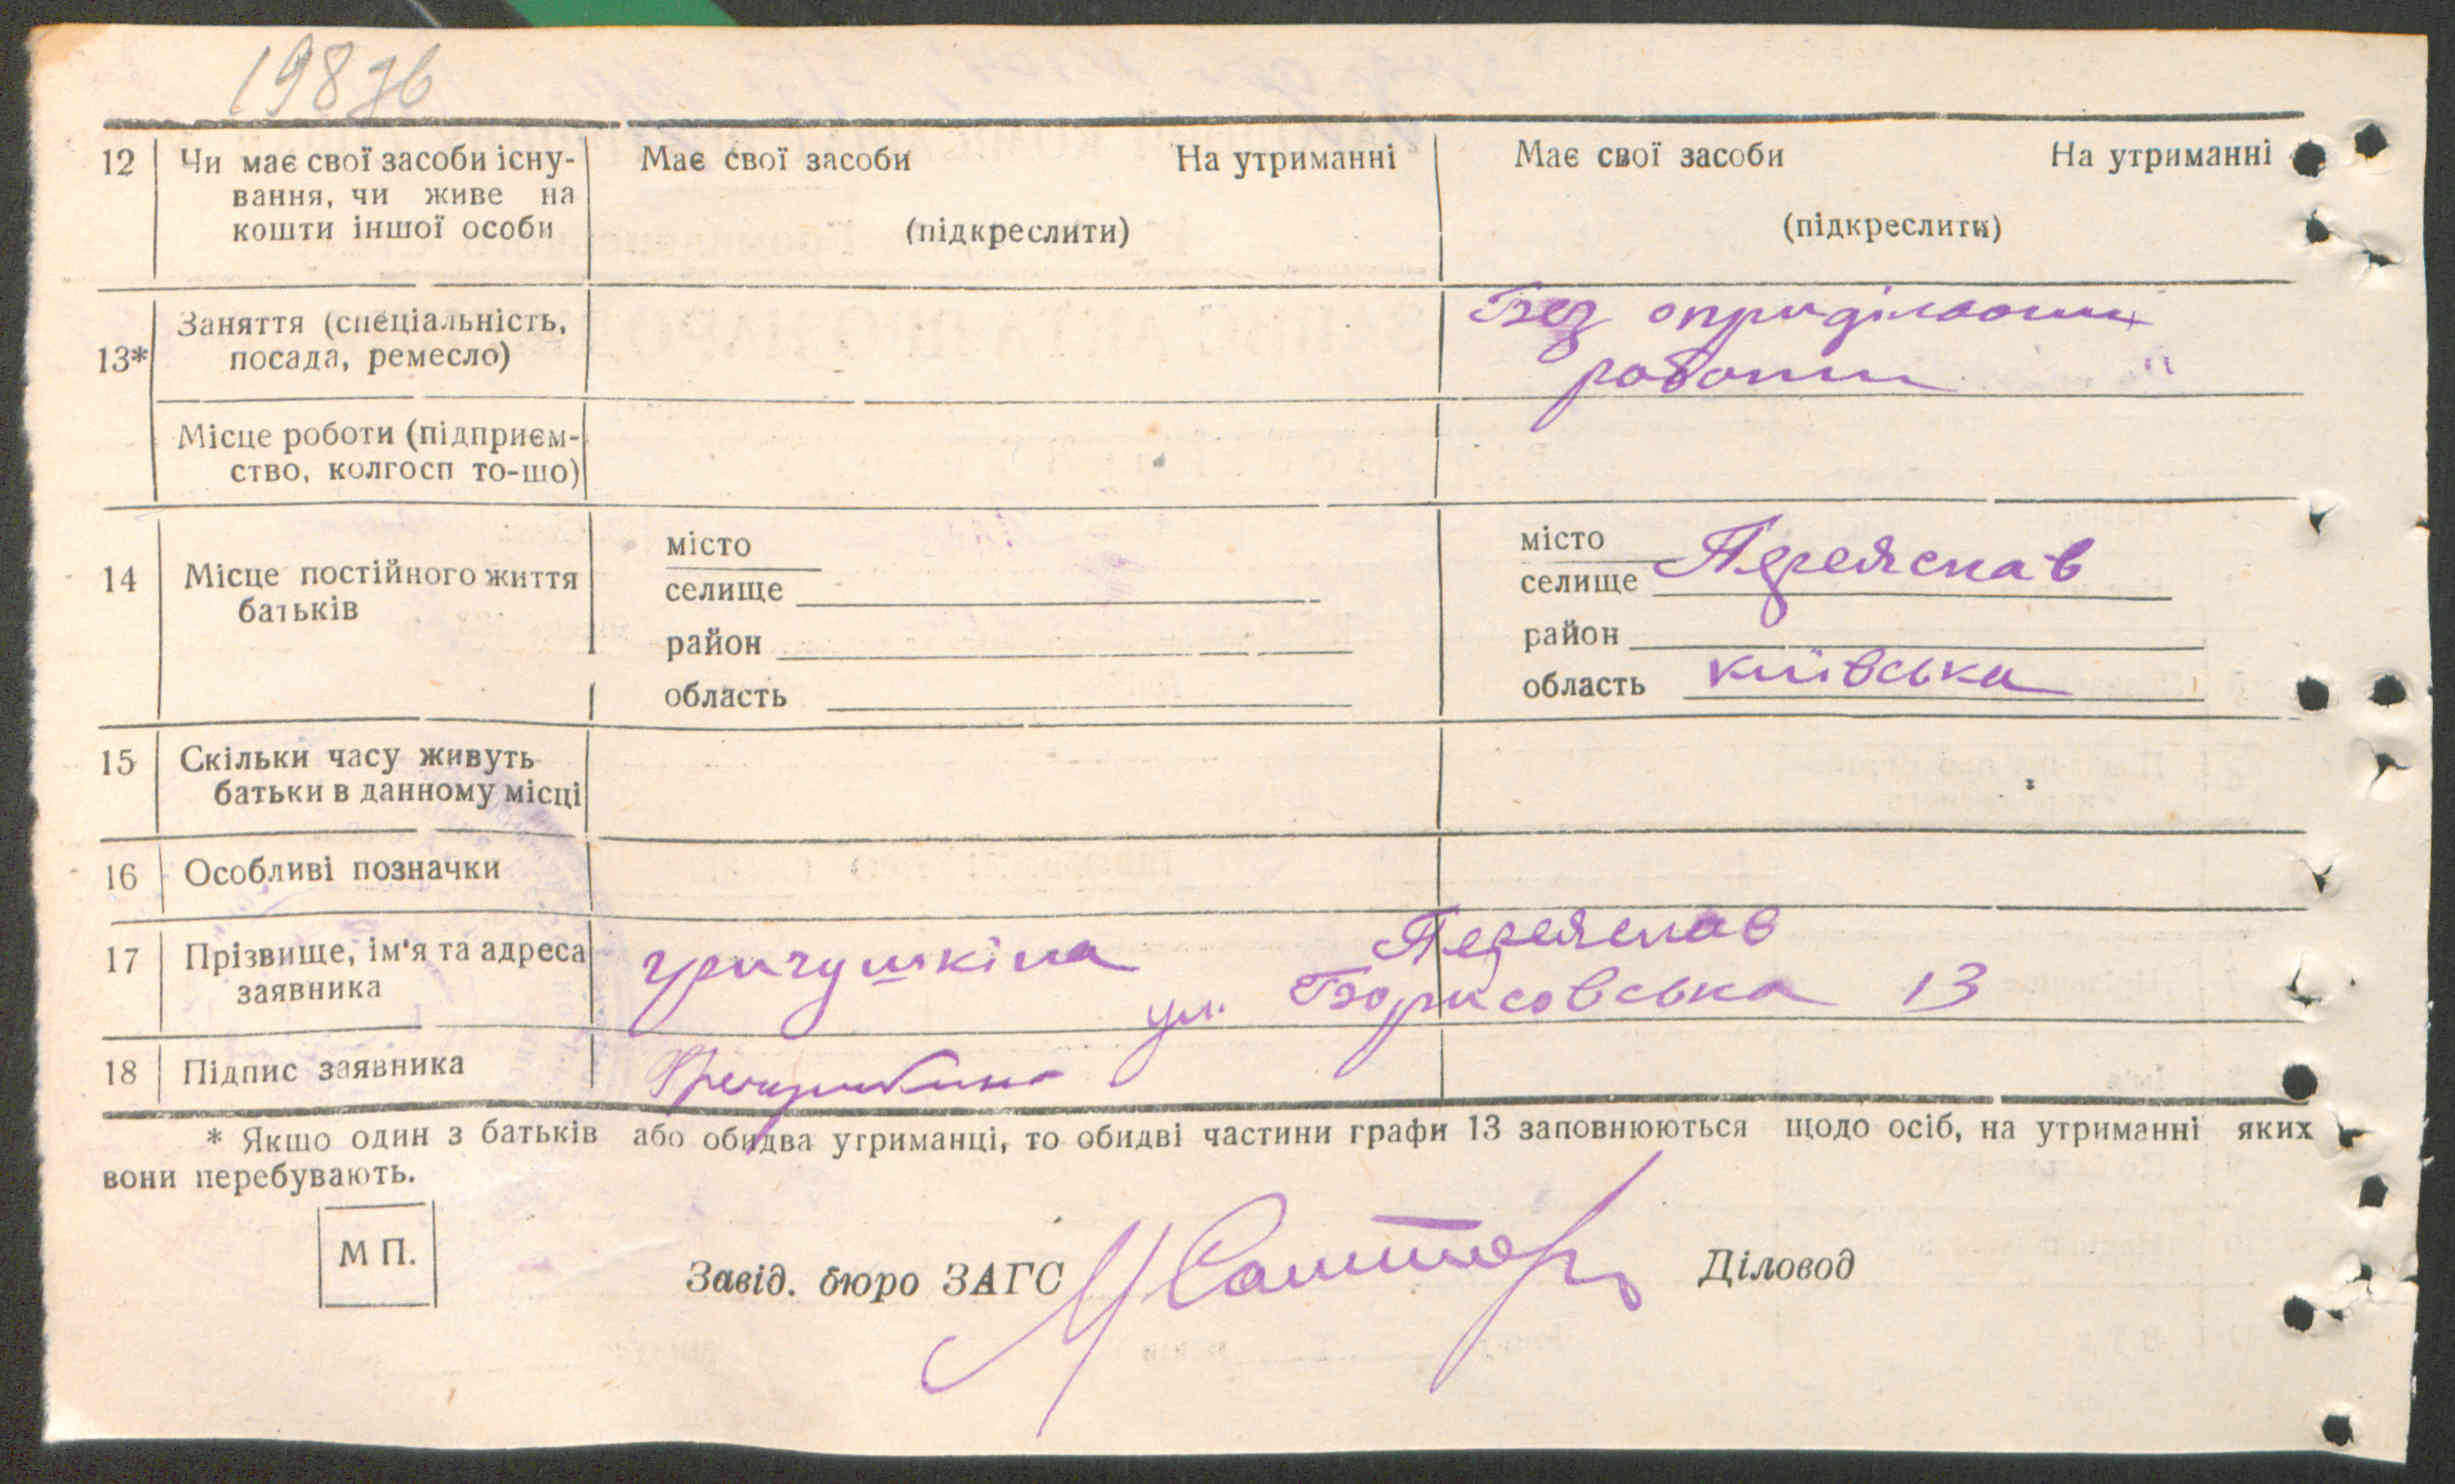 198зв
12 Чи має свої засоби існу- Має свої засоби На утриманні Має свої засоби На утриманні
вання, чи живе на
кошти іншої особи (підкреслити) (підкреслити)
13* Заняття (спеціальність, Без опридільоних
посада, ремесло) работи
Місце роботи (підприєм-
ство, колгосп то-що)
14 Місце постійного життя
батьків
місто
селище
район
область
місто
селище Переяслав
район
область київська
15 Скільки часу живуть
батьки в данному місці
16 Особливі позначки
17 Прізвище, ім'я та адреса гричушкіна Переяслав
заявника ул. Борисовська 13
18 Підпис заявника Гречушкина
* Якшо один з батьків або обидва утриманці, то обидві частини графи 13 заповнюються щодо осіб, на утриманні яких
вони перебувають.
М П.
Завід. бюро ЗАГС Діловод